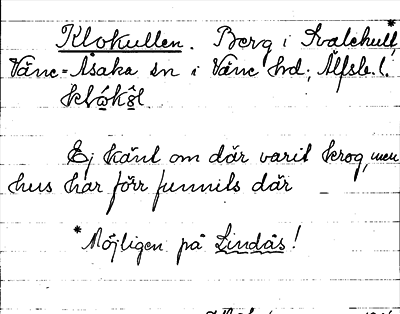 Klokullen. Berg i Svalehult,*
Väne-Åsaka sn i Väne hd; Älfsb. l.
Ej känt om där varit krog, men
hus har förr funnits där
*Möjligen på Lindås!